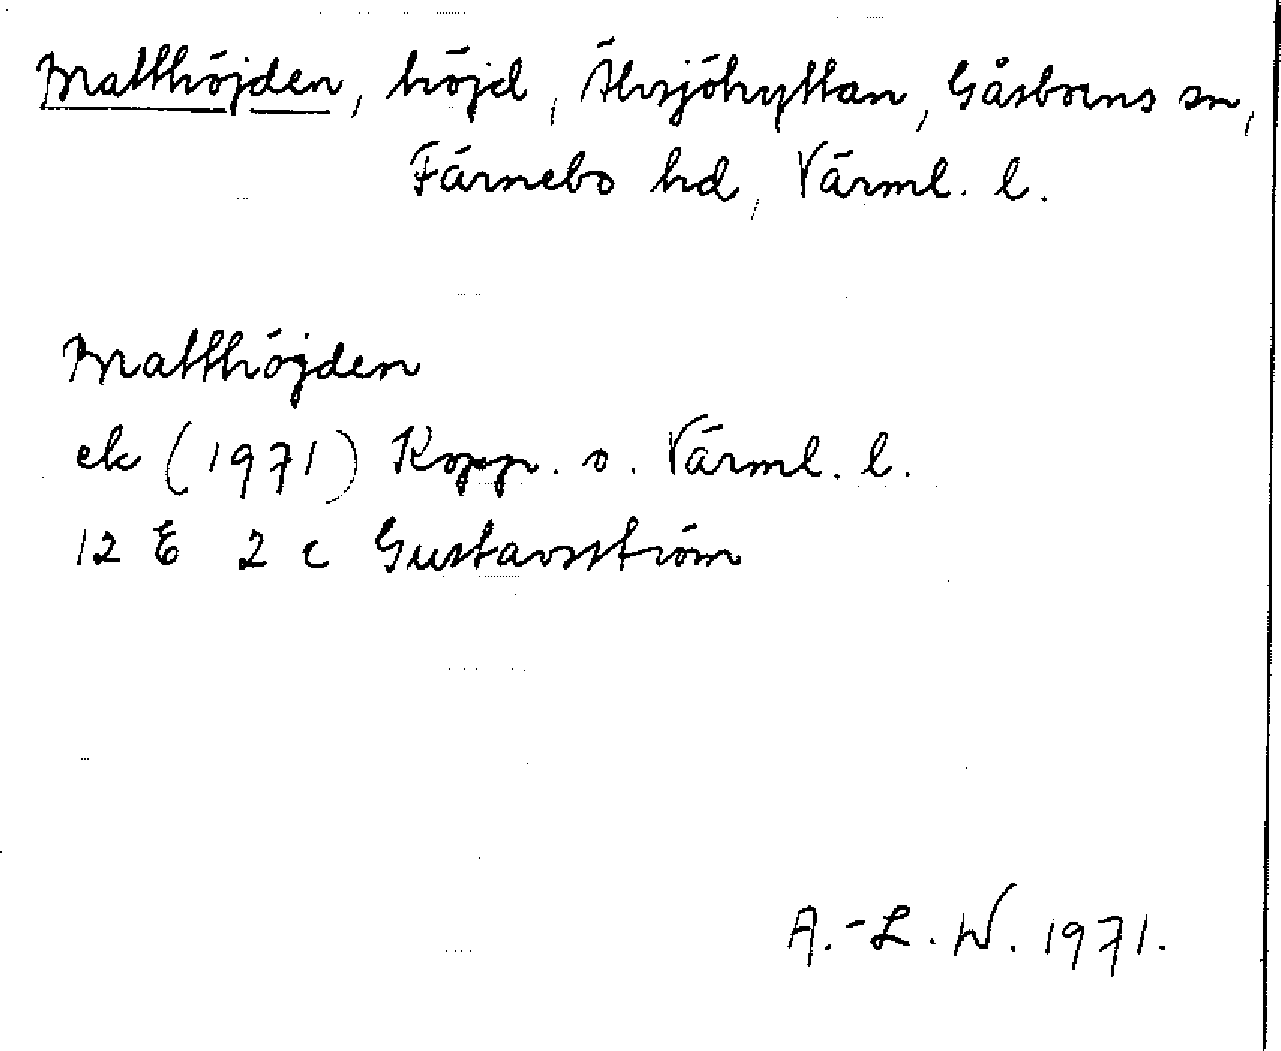 Matthöjden, höjd, Älvsjöhyttan, Gåsborns sn,
Färnebo hd, Värml. l.
Matthöjden
ek (1971) Kopp. o. Värml. l.
12 E 2 c Gustavsström
A.-L. W. 1971.